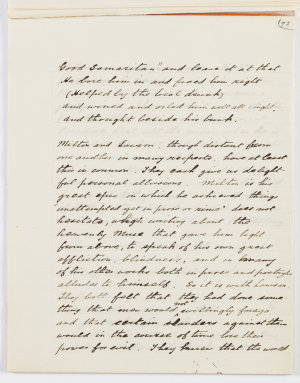 73
Good Samaritan" and leave it at that
He bore him in and fixed him right
(Helped by the local drunk)
and wined and oiled him well all night,
and thought beside his bunk.
Milton and Lawson, though distant from
one another in many respects, have at least
this in common. They each give us delight-
ful personal allusions. Milton in his
great epic in which he achieved things
unattempted yet in prose or rime" does not
hesitate, when writing about the
heavenly Muse that gave him light
from above, to speak of his own great
affliction, blindness, and in many
of his other works both in prose and poetry he
alludes to himself. So it is with Lawson.
They both felt that they had done some
thing that men would not willingly forego
and that certain slanders against them
would in the course of time lose their
power for evil. They knew that the world